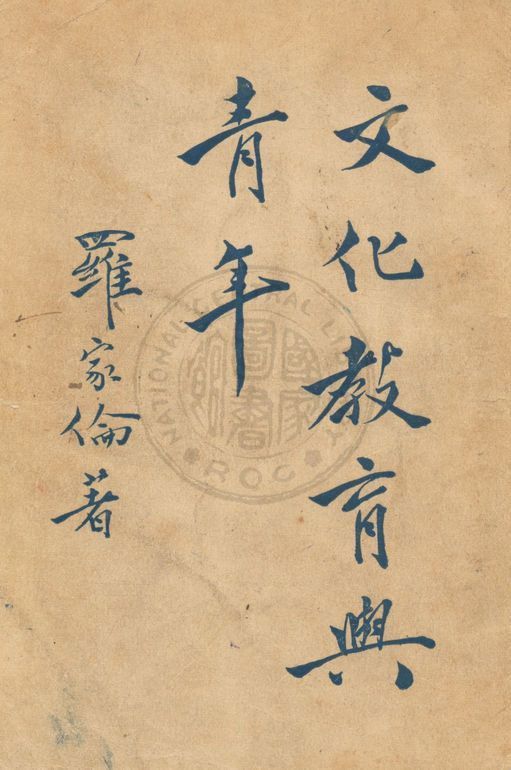 文化教育與
青年
羅家倫著
NATIONAL CENTRAL LIBRARY
ROC
國家圖書館